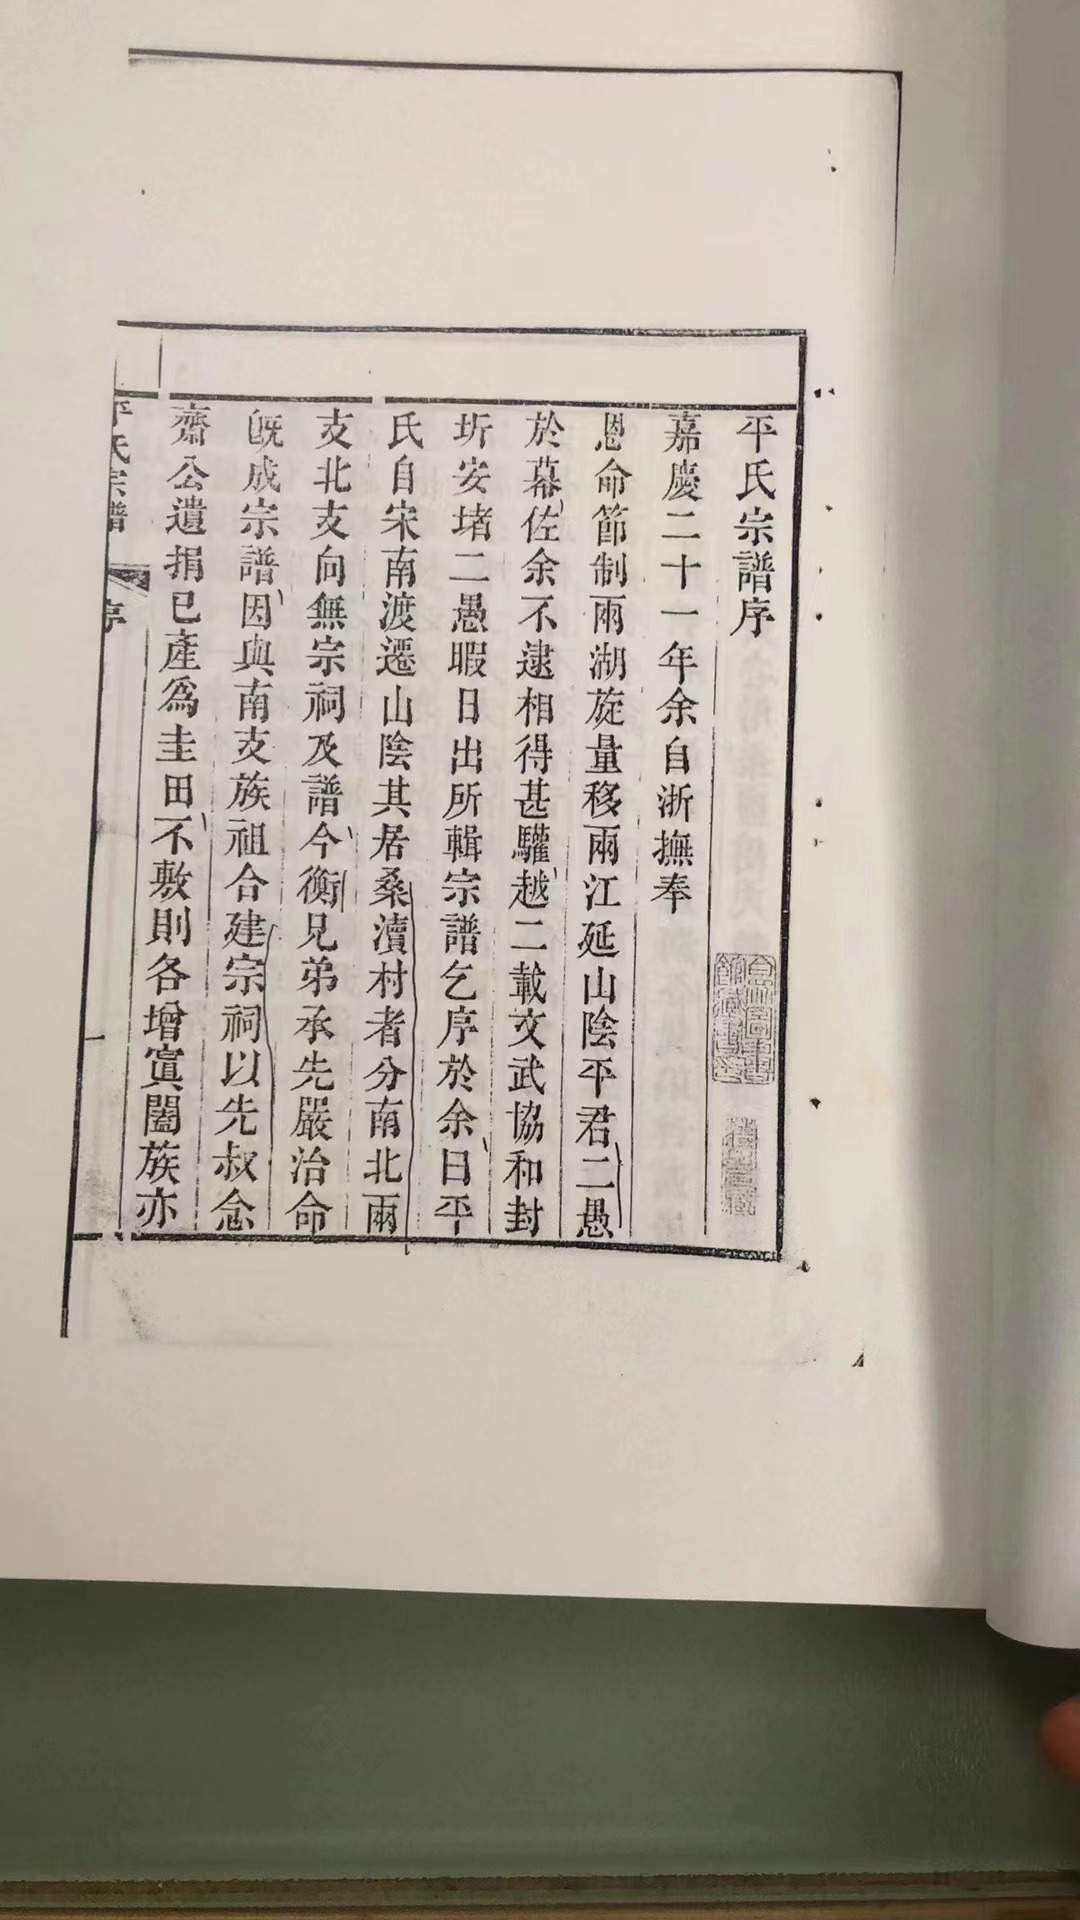 平氏宗譜序
嘉慶二十一年余自浙撫奉
恩命節制兩湖旋量移兩江延山陰平君二愚
於幕佐余不逮相得甚驩越二載文武協和封
圻安堵二愚暇日出所輯宗譜乞序於余曰平
氏自宋南渡遷山陰其居桑瀆村者分南北兩
支北支向無宗祠及譜今衡兄弟承先嚴治命
旣成宗譜因與南支族祖合建宗祠以先叔念
齋公遺捐已產爲圭田不敷則各增寘闔族亦
平氏宗譜 序